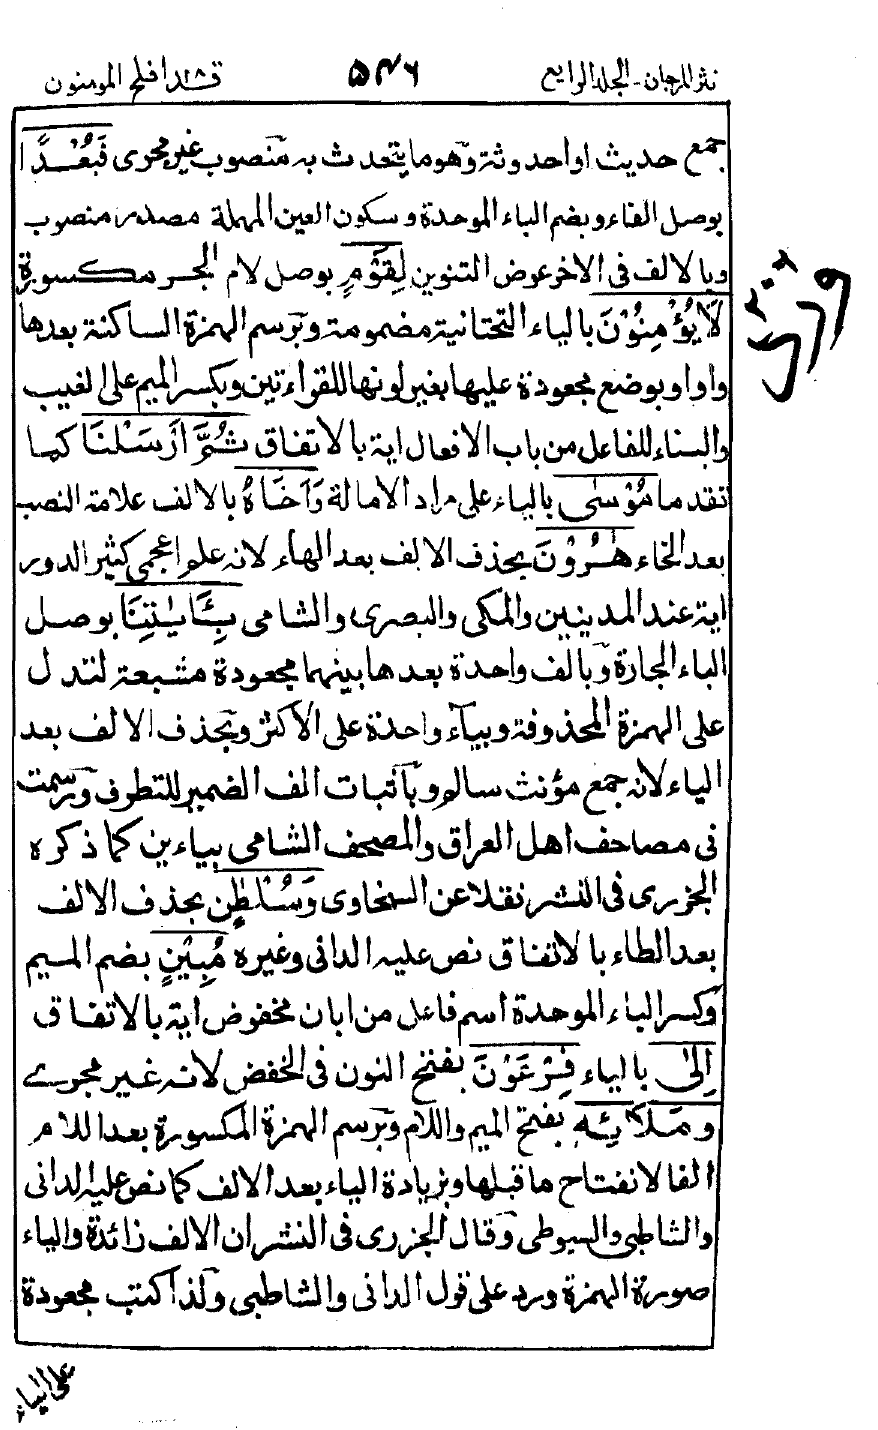 نثر المرجان - الجلد الرابع ٥٤٦ قد افلح ١٨ المومنون
جمع حديث او احدوثة وهو ما يتحدث به منصوب غير مجرى فَبُعْدًا
بوصل الفاء وبضم الباء الموحدة وسكون العين المهملة مصدر منصوب
وبالالف فى الاخر عوض التنوين لِقَوْمٍ بوصل لام الجر مكسورة
لَا يُؤْمِنُوْنَ بالياء التحتانية مضمومة وبرسم الهمزة الساكنة بعدها
واوا وبوضع مجعودة عليها بغير لونها للقراءتين وبكسر الميم على الغيب
والبناء للفاعل من باب الافعال اية بالاتفاق ثُمَّ اَرْسَلْنَا كما
تقدم مُوْسٰى بالياء على مراد الامالة وَاَخَاهُ بالالف علامة النصب
بعد الخاء هٰرُوْنَ بحذف الالف بعد الهاء لانه علم اعجمى كثير الدور
اية عند المدنيين والمكى والبصرى والشامى بِـَٔايٰتِنَا بوصل
الباء الجارة وبالف واحدة بعدها بينهما مجعودة مشبعة لتدل
على الهمزة المحذوفة وبياء واحدة على الاكثر وبحذف الالف بعد
الياء لانه جمع مؤنث سالم وباثبات الف الضمير للتطرف ورسمت
فى مصاحف اهل العراق والمصحف الشامى بياءين كما ذكره
الجزرى فى النشر نقلا عن السخاوى وَسُلْطٰنٍ بحذف الالف
بعد الطاء بالاتفاق نص عليه الدانى وغيره مُبِيْنٍ بضم الميم
وكسر الباء الموحدة اسم فاعل من ابان مخفوض اية بالاتفاق
اِلٰى بالياء فِرْعَوْنَ بفتح النون فى الخفض لانه غير مجرے
وَمَلَا۠ئِهٖ بفتح الميم واللام وبرسم الهمزة المكسورة بعد اللام
الفا لانفتاح ما قبلها وبزيادة الياء بعد الالف كما نص عليه الدانى
والشاطبى والسيوطى وقال الجزرى فى النشر ان الالف زائدة والياء
صورة الهمزة ورد على قول الدانى والشاطبى وكذا كتب مجعودة
على الياء